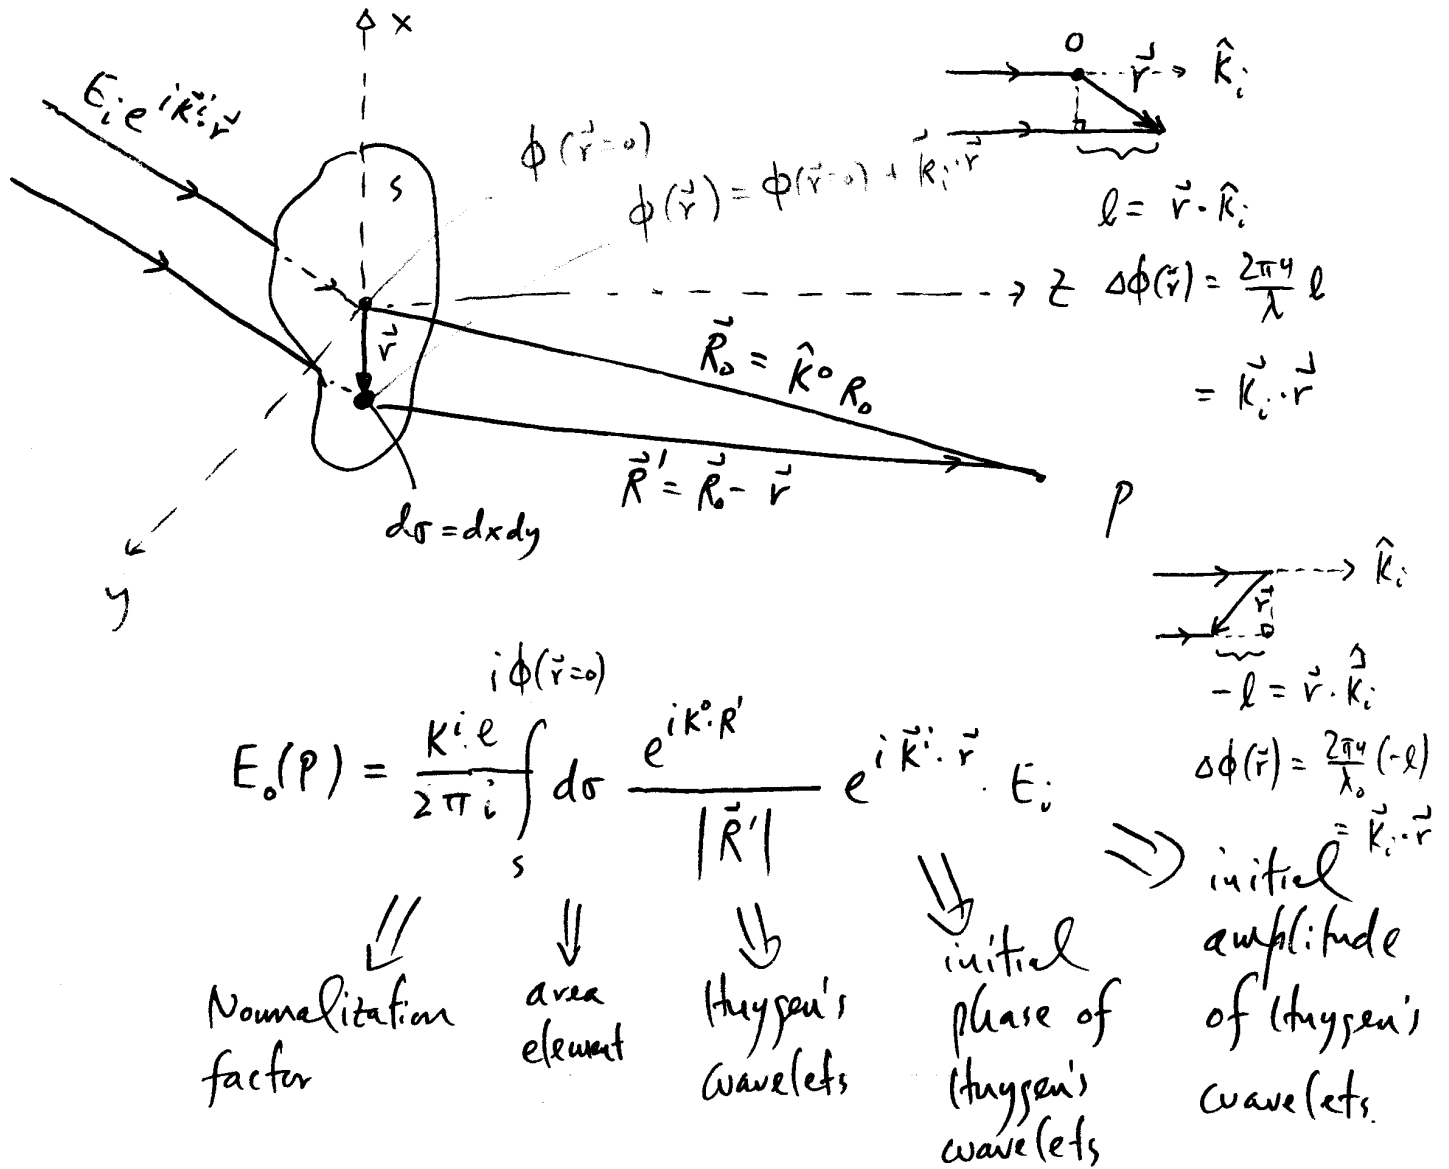 x
E_i e^{i\vec{k}^i·\vec{r}}
S
φ(\vec{r}=0)
φ(\vec{r}) = φ(\vec{r}=0) + \vec{k}_i·\vec{r}
\vec{r}
z
\vec{R}_0 = \hat{k}^0 R_0
\vec{R}' = \vec{R}_0 - \vec{r}
P
dσ = dxdy
y
O
\vec{r}
\hat{k}_i
l = \vec{r}·\hat{k}_i
Δφ(\vec{r}) = \frac{2πn}{λ} l
= \vec{k}_i·\vec{r}
\hat{k}_i
\vec{r}
-l = \vec{r}·\hat{k}_i
Δφ(\vec{r}) = \frac{2πn}{λ_0} (-l)
= \vec{k}_i·\vec{r}
E_0(P) = \frac{k^i e^{iφ(\vec{r}=0)}}{2πi} ∫_S dσ \frac{e^{ik^0·R'}}{|\vec{R}'|} e^{i\vec{k}^i·\vec{r}} · E_i
Normalization
factor
area
element
Huygen's
wavelets
initial
phase of
Huygen's
wavelets
initial
amplitude
of Huygen's
wavelets.